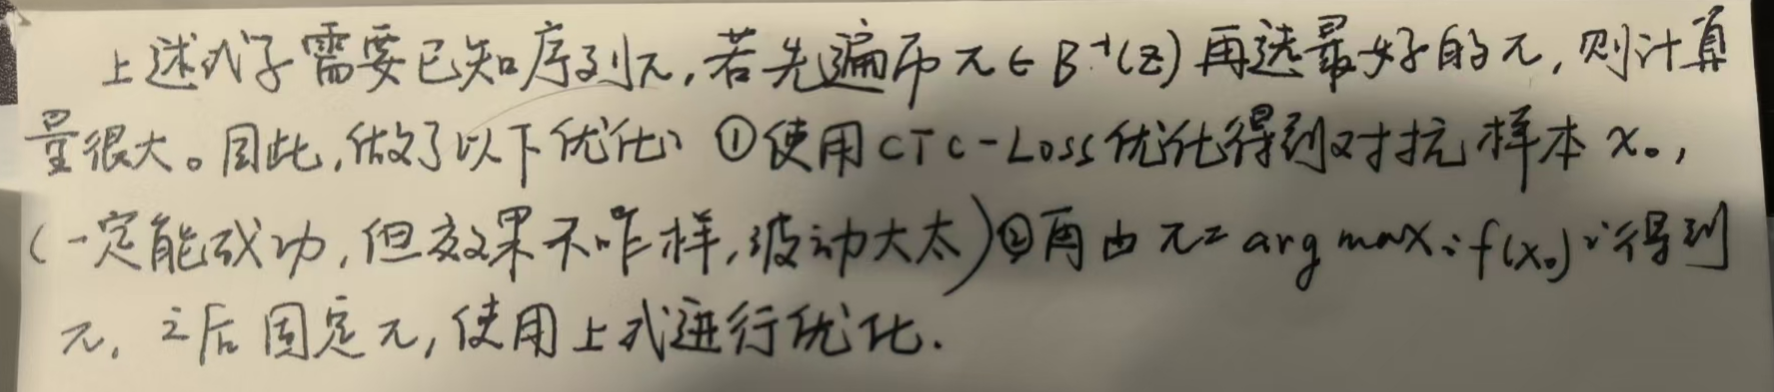 上述式子需要已知序列π,若先遍布π∈B⁻¹(z)再选最好的π,则计算
量很大。因此,做了以下优化:①使用CTC-Loss优化得到对抗样本x₀,
(一定能成功,但效果不咋样,波动大太)②再由π=arg maxᵢf(x₀)ⁱ得到
π.之后固定π,使用上式进行优化.